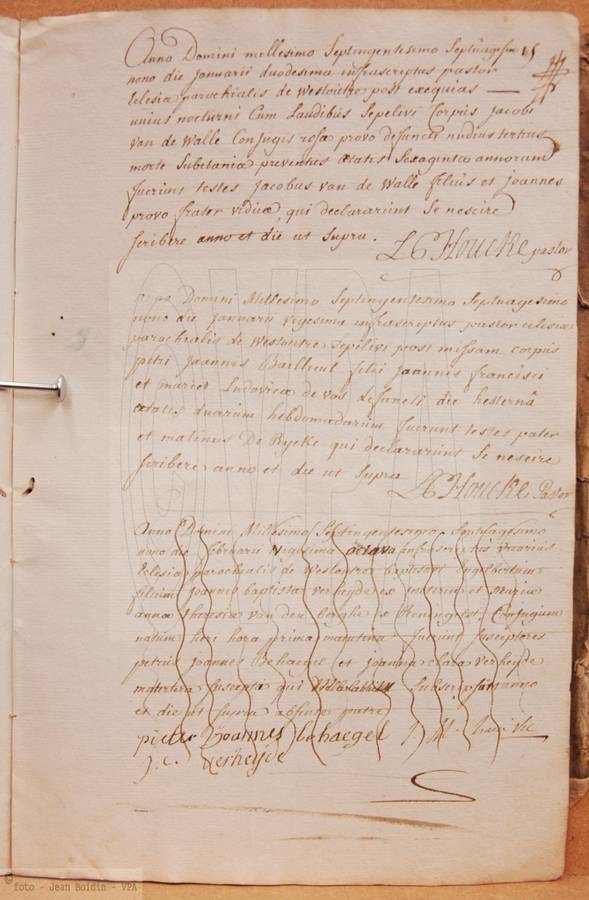 Anno Domini mellesimo Septingentesimo Septuages 15
nono die Januarii duodesima infrascriptus pastor
Eclesia parochialis de Westoutre post exequias
unius nocturni Cum Laudibus Sepelivi Corpus jacobi
van de Walle Conjugis rosa provo defuncti nudius tertius
morte Subitania preventus ætatis Sexaginta annorum
fuerunt testes jacobus van de Walle filius et joannes
provo frater viduæ, qui declararunt Se nescire
scribere anno et die ut Supra.
Houcke pastor
Domini Millesimo Septingentesimo Septuagesimo
nono die januarii vigesima infrascriptus pastor eclesia
parochialis de Westoutre Sepelivi post missam corpus
petri joannis Baillieul filii joannis francisci
et mariæ Ludovica de vos defuncti die hesternâ
ætatis duarum hebdomadarum fuerunt testes pater
et matinus De Rycke qui declararunt Se nescire
scribere anno et die ut Supra
Houcke Pastor
Anno Domini Millesimo Septingentesimo Septuagesimo
nono die februarii vigesima octava infrascriptus vicarius
Eclesia parochialis de Westoutre baptisavi Engelbertum
filium joannis baptista verheyde ex et maria
anna theresia van den berghe de Reningelst Conjugum
natum heri hora prima matutina fuerunt Susceptores
petrus joannes Behaegel et joanna clara verheyde
matertera Suscepti qui Subscripserunt anno
et die ut Supra absente patre
pieter joannes behaegel
j. c. verheyde
foto - Jean Boidin - VPA